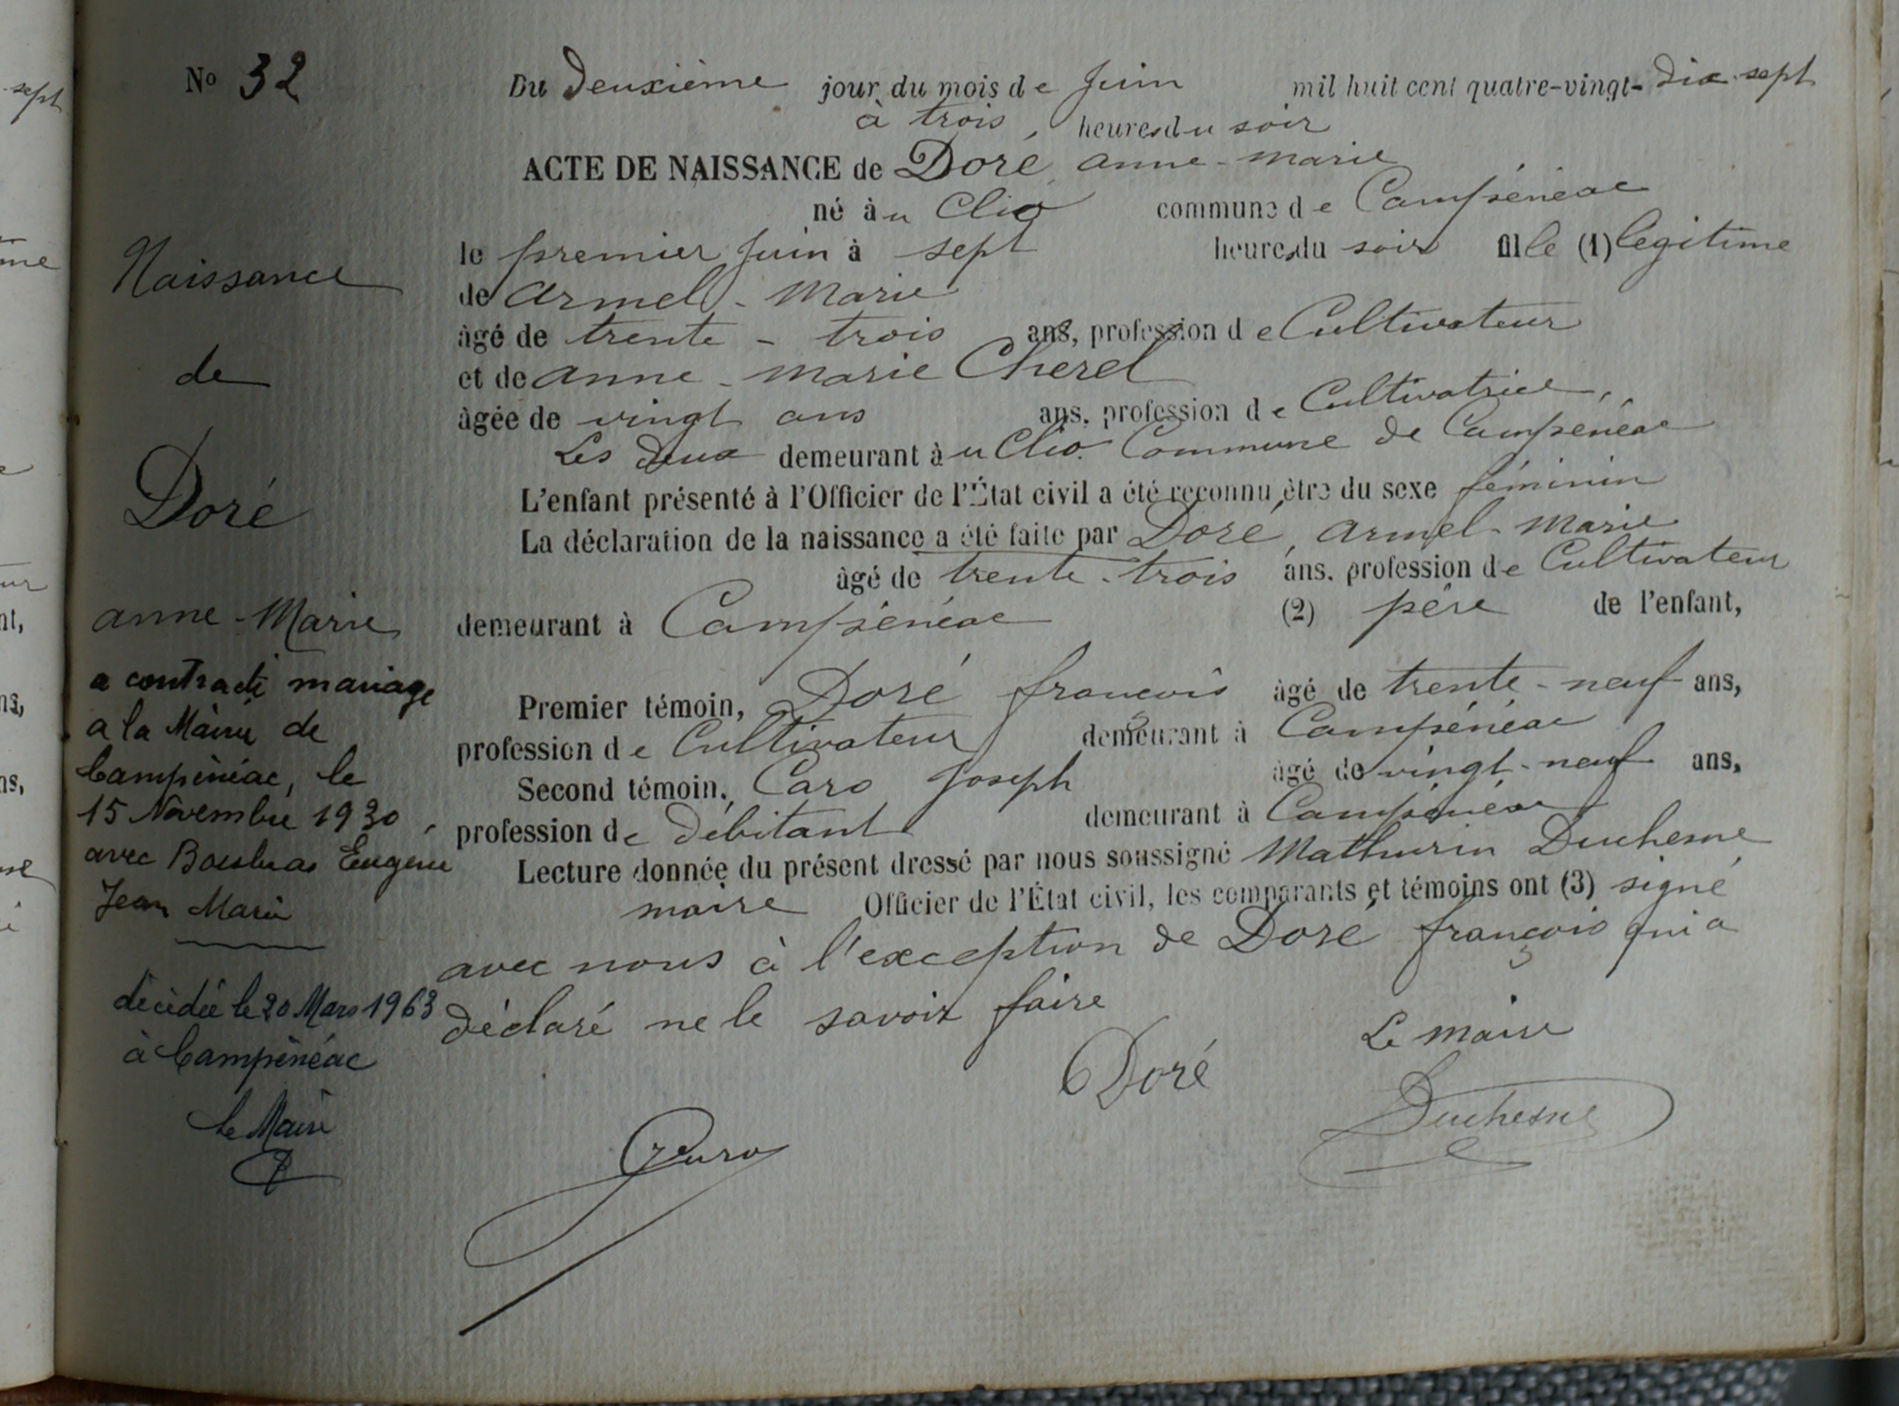 No 32
Du deuxième jour du mois de Juin mil huit cent quatre-vingt-dix-sept
à trois heures du soir
ACTE DE NAISSANCE de Doré, anne-marie
né à u Clio commune de Campénéac
le premier Juin à sept heures du soir fille (1) légitime
de armel-marie
âgé de trente-trois ans, profession de Cultivateur
et de anne-marie Cherel
âgée de vingt ans ans, profession de Cultivatrice,
Les deux demeurant à u Clio Commune de Campénéac
L'enfant présenté à l'Officier de l'État civil a été reconnu être du sexe féminin
La déclaration de la naissance a été faite par Doré, armel-marie
âgé de trente-trois ans, profession de Cultivateur
demeurant à Campénéac (2) père de l'enfant,
Premier témoin, Doré françois âgé de trente-neuf ans,
profession de Cultivateur demeurant à Campénéac
Second témoin, Caro Joseph âgé de vingt-neuf ans,
profession de débitant demeurant à Campénéac
Lecture donnée du présent dressé par nous soussigné Mathurin Duchesne
maire Officier de l'État civil, les comparants et témoins ont (3) signé
avec nous à l'exception de Doré françois qui a
déclaré ne le savoir faire
Le maire
Doré
Duchesne
Naissance
de
Doré
anne-Marie
a contracté mariage
a la Mairie de
Campénéac, le
15 Novembre 1930,
avec Eugène
Jean Marie
décédée le 20 Mars 1963
à Campénéac
Le Maire
sept
me
ur
nt,
ns,
ns,